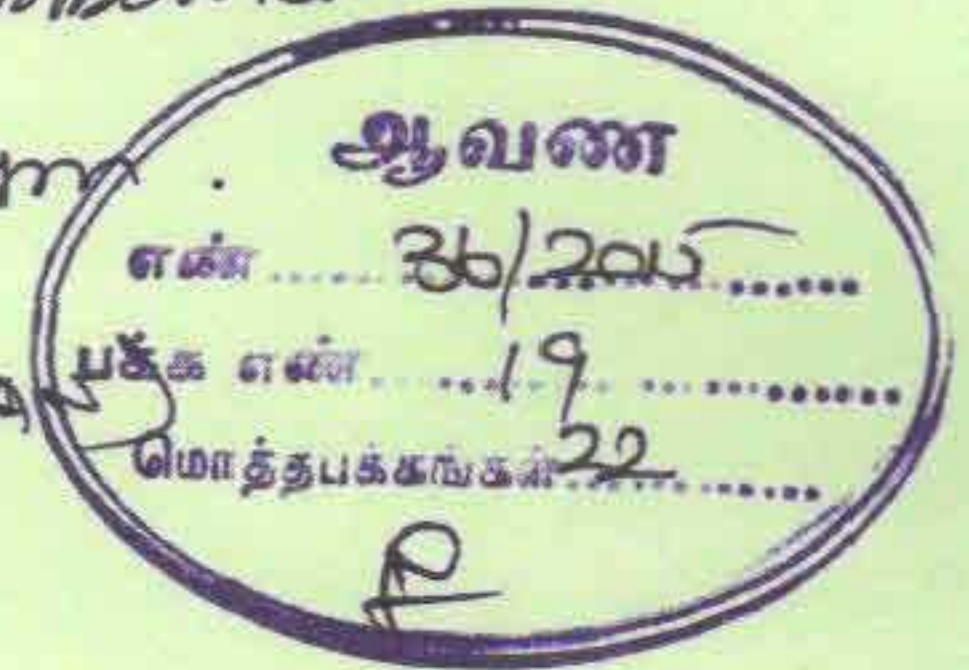 ஆவண
எண் ..... 36/2015 ......
பக்க எண் ..... 19 .... ......
மொத்தபக்கங்கள் 22 ...... .....